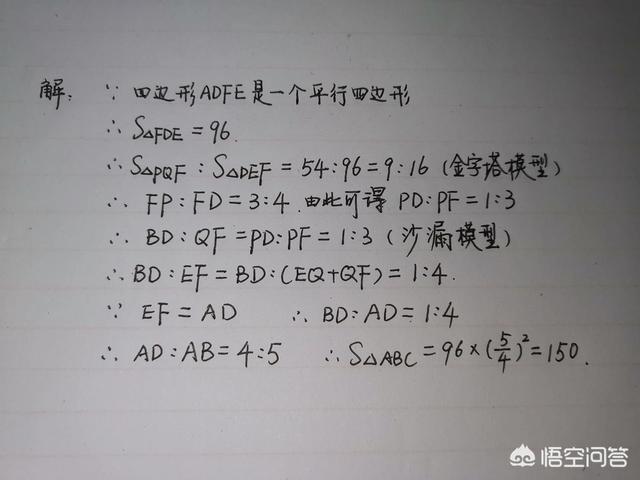 解: ∵ 四边形ADFE是一个平行四边形
∴ S△FDE = 96
∴ S△PQF : S△DEF = 54:96 = 9:16 (金字塔模型)
∴ FP:FD = 3:4. 由此可得 PD:PF = 1:3
∴ BD:QF = PD:PF = 1:3 (沙漏模型)
∴ BD:EF = BD:(EQ+QF) = 1:4.
∵ EF = AD ∴ BD:AD = 1:4
∴ AD:AB = 4:5 ∴ S△ABC = 96×(5/4)² = 150.
悟空问答